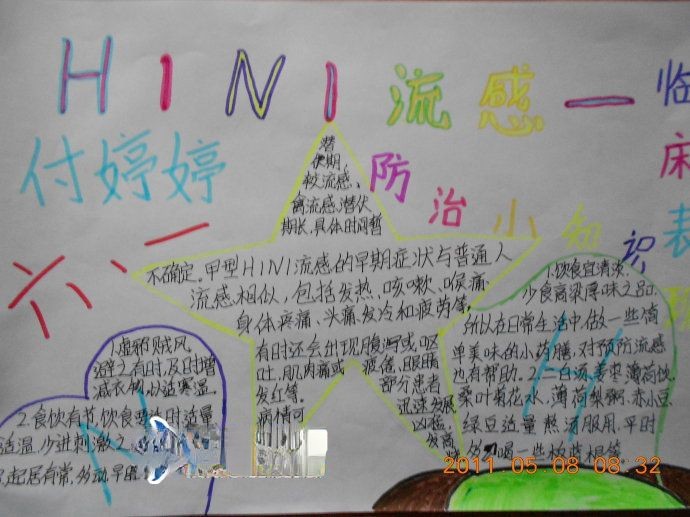 HINI流感一
临
床
表
现
付婷婷
防治小知识
六、一
潜
伏期,
较流感、
禽流感潜伏
期长,具体时间暂
不确定。甲型HINI流感的早期症状与普通人
流感相似,包括发热、咳嗽、喉痛
身体疼痛、头痛、发冷和疲劳等,
有时还会出现腹泻或呕
吐、肌肉痛或疲倦、眼睛
发红等。
部分患者
病情可
迅速发展
1.虚邪贼风
避之有时,及时增
减衣物,以适寒温.
2.食饮有节,饮食要适时适量
适温,少进刺激之
起居有常,劳动早
1.饮食宜清淡.
少食膏粱厚味之品.
所以在日常生活中,做一些简
单美味的小药膳,对预防流感
也有帮助.2.二白汤,姜枣薄荷饮
桑叶菊花水,薄荷梨粥,赤小豆
绿豆适量熬汤服用.平时
喝一些板蓝根等
2011 05 08 08:32